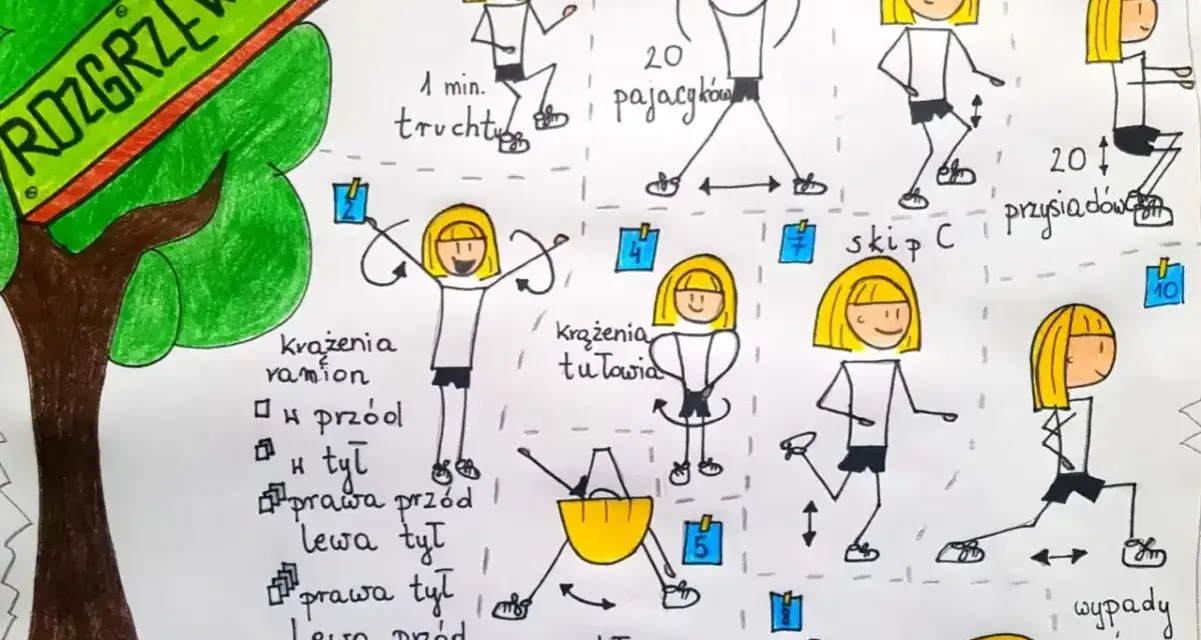 ROZGRZEW
1 min.
truchtu
20
pajacyków
20
przysiadów
2
krążenia
ramion
w przód
w tył
prawa przód
lewa tył
prawa tył
lewa przód
4
krążenia
tułowia
5
7
skip C
8
10
wypady